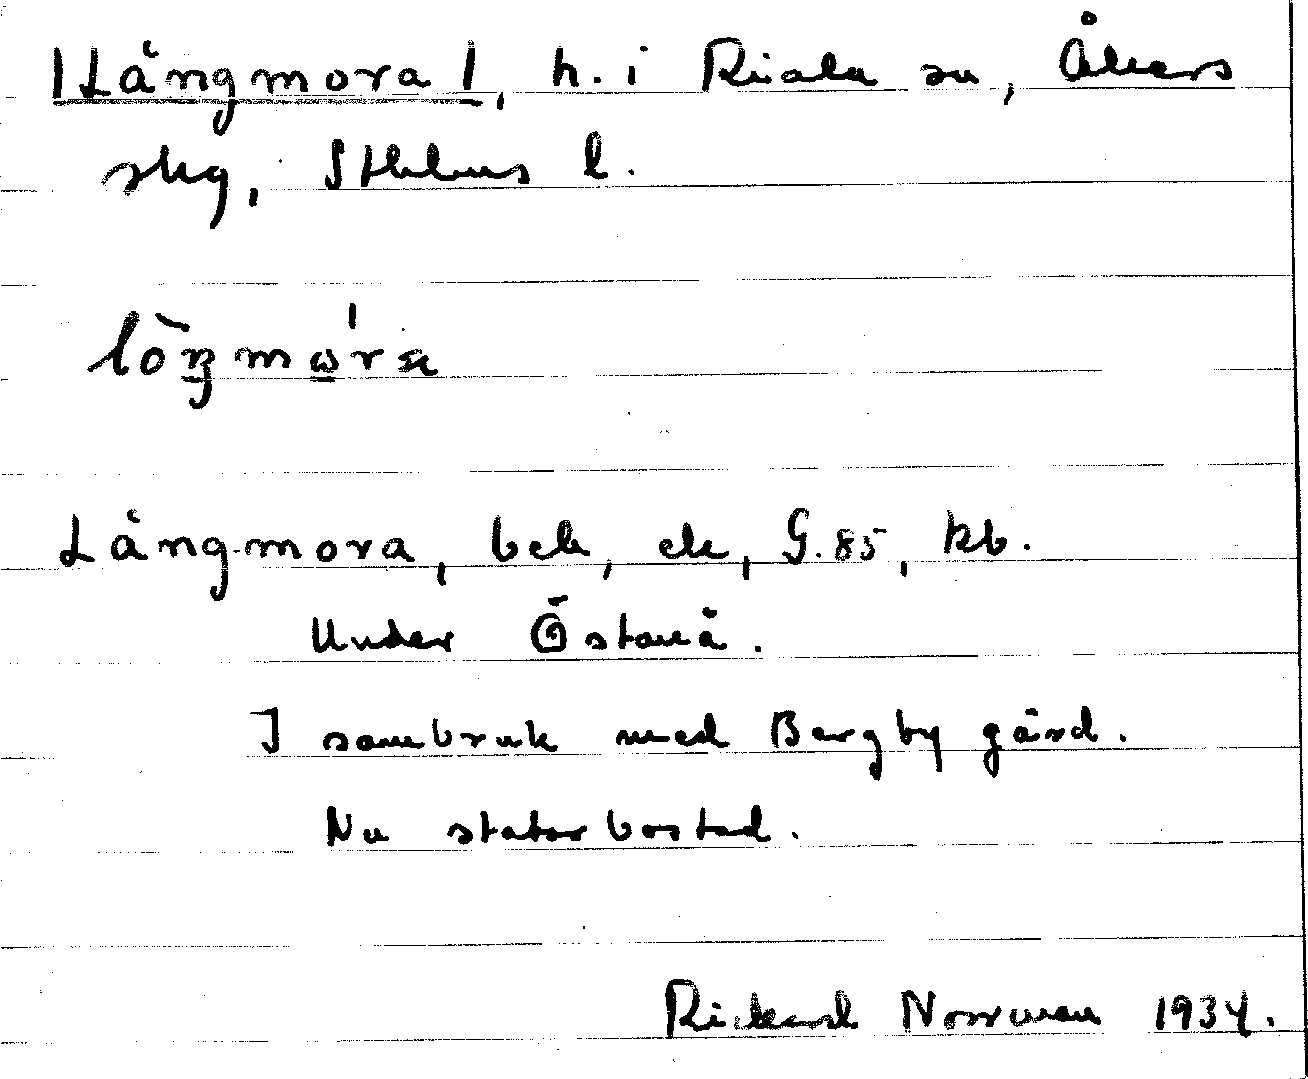 |Långmora|, h. i Riala sn, Åkers
skg, Sthlms l.
Långmora, bek, ek, G.85, kb.
Under Östanå.
I sambruk med Bergby gård.
Nu statarbostad.
Rickard Norrman 1934.